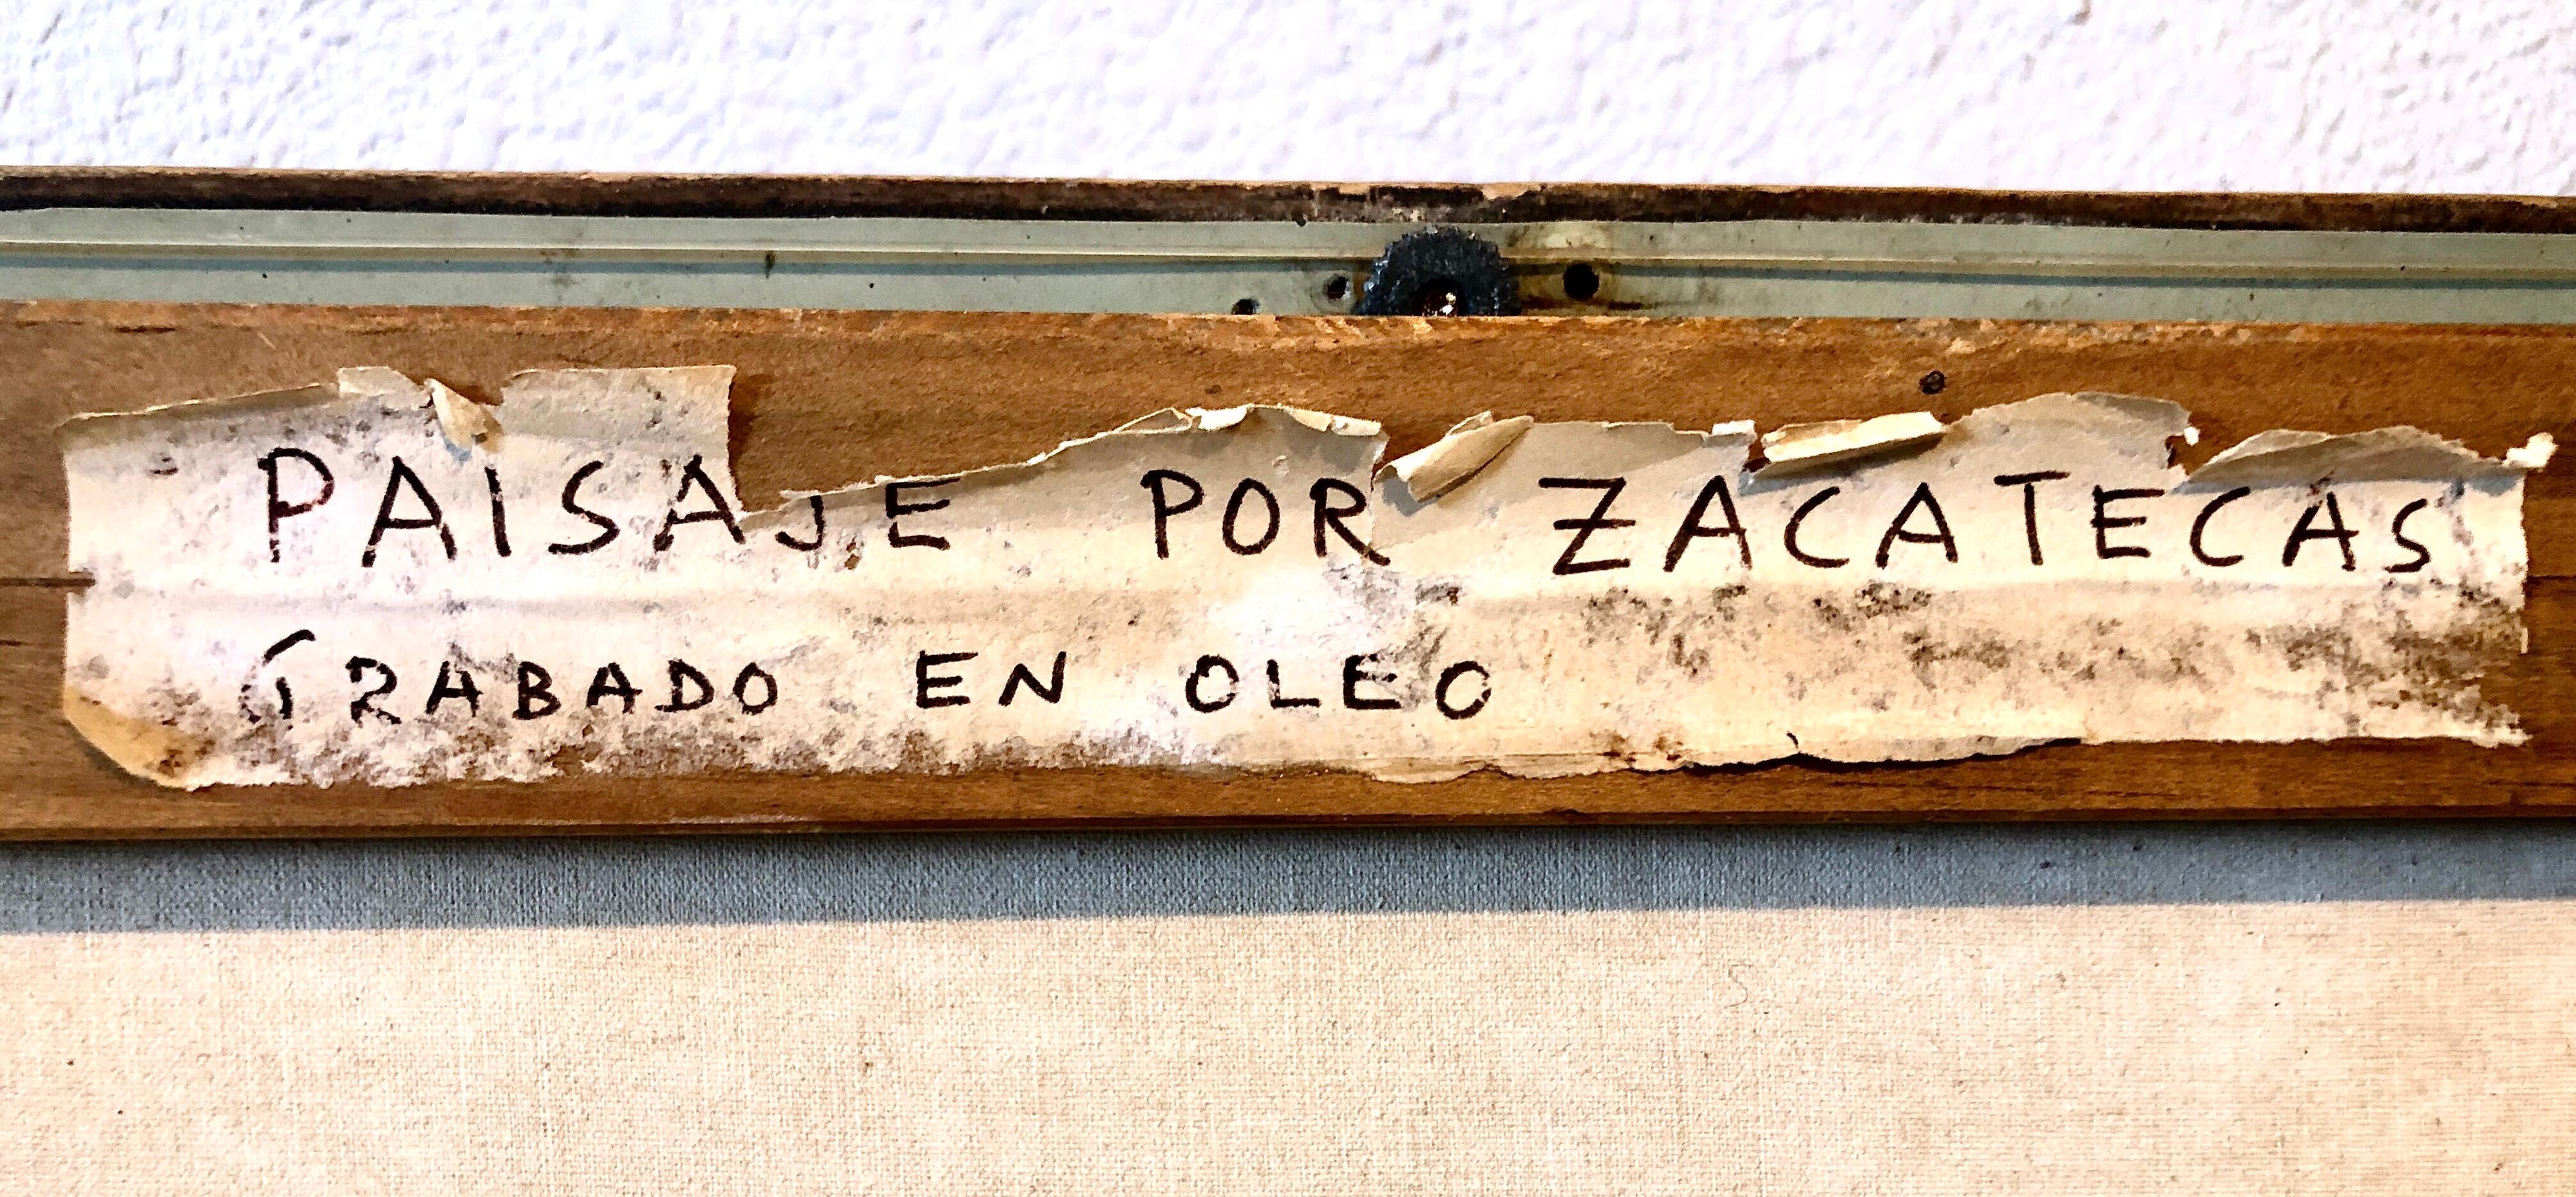 PAISAJE POR ZACATECAS
GRABADO EN OLEO